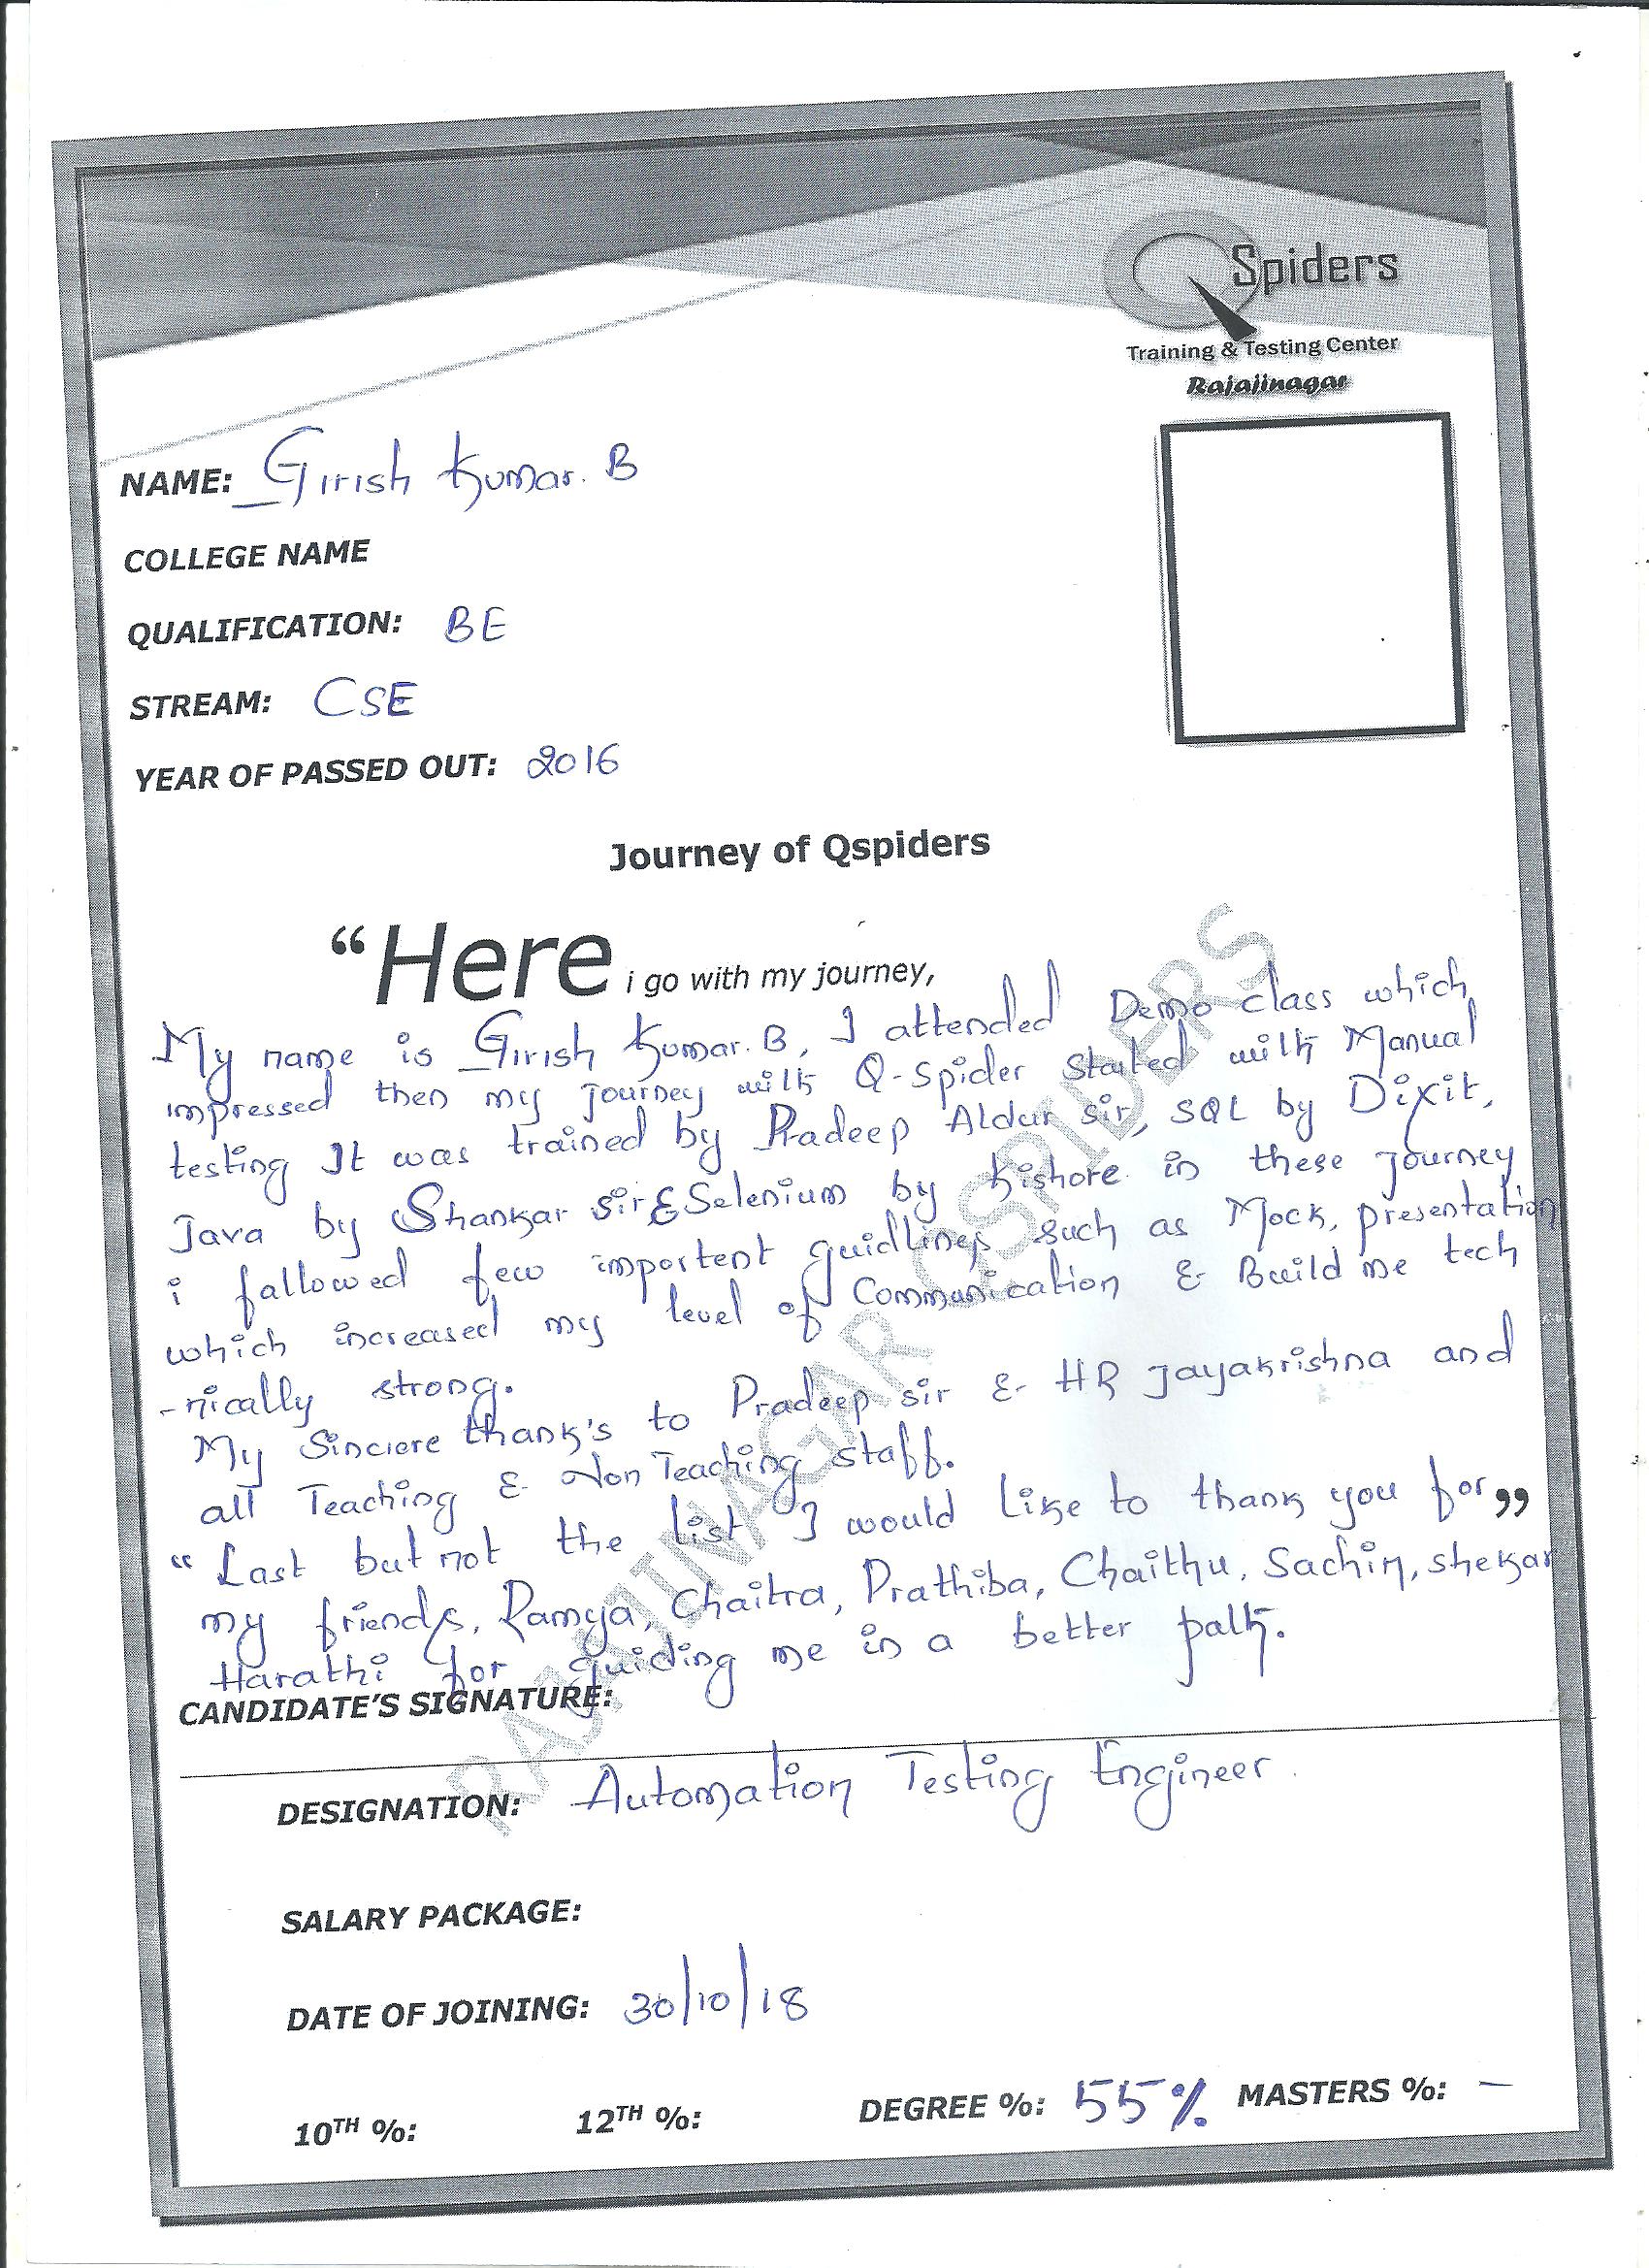 QSpiders
Training & Testing Center
Rajajinagar
NAME: Girish Kumar. B
COLLEGE NAME
QUALIFICATION: BE
STREAM: CSE
YEAR OF PASSED OUT: 2016
Journey of Qspiders
“Here i go with my journey,
My name is Girish Kumar. B, I attended Demo class which
impressed then my journey with Q-Spider started with Manual
testing It was trained by Pradeep Aldur sir, SQL by Dixit,
Java by Shankar sir & Selenium by Kishore in these journey
i fallowed few importent guidlines such as Mock, presentation
which increased my level of Communication & Build me tech
-nically strong.
My Sinciere thank's to Pradeep sir & HR Jayakrishna and
all Teaching & Non Teaching staff.
“Last but not the list I would like to thank you for”
my friends, Ramya, Chaitra, Prathiba, Chaithu, Sachin, shekar
Harathi for guiding me in a better path.
CANDIDATE'S SIGNATURE:
DESIGNATION: Automation Testing Engineer.
SALARY PACKAGE:
DATE OF JOINING: 30/10/18
10TH %: 12TH %: DEGREE %: 55% MASTERS %: –
RAJAJINAGAR QSPIDERS